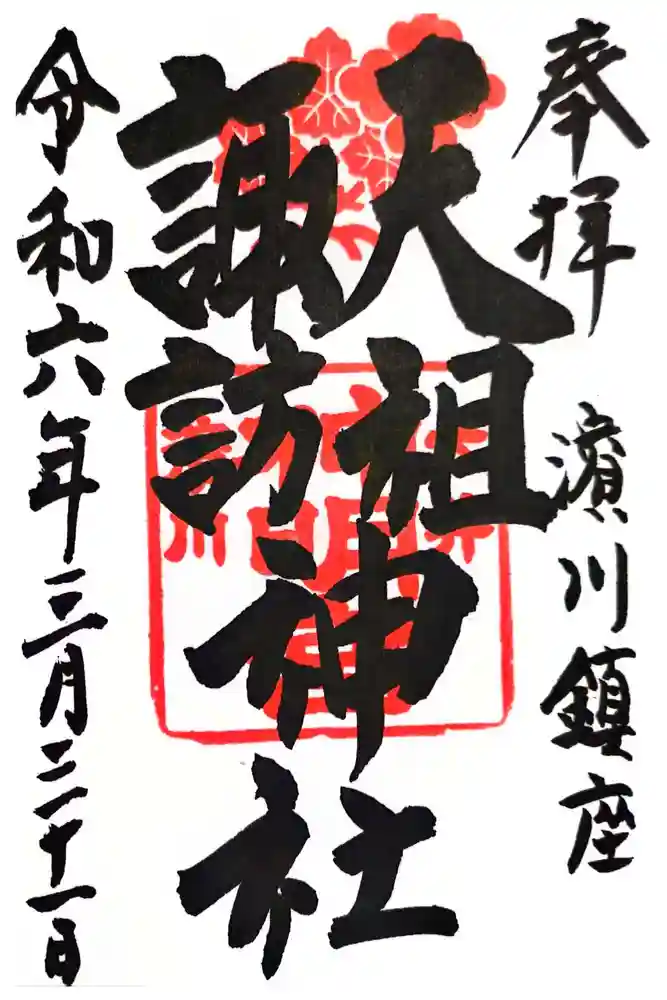 奉拝 濱川鎮座
天祖
諏訪
神社
令和六年三月二十一日